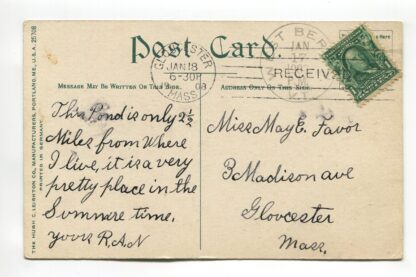 Post Card
GLOUCESTER
JAN 18
6-30P
08
MASS.
ST BER
JAN
17
RECEIVED
MESSAGE MAY BE WRITTEN ON THIS SIDE.
ADDRESS ONLY ON THIS SIDE.
THE HUGH C. LEIGHTON CO., MANUFACTURERS, PORTLAND, ME., U.S.A. 25708
PRINTED IN GERMANY.
This Pond is only 2½
Miles from Where
I live, it is a very
pretty place in the
Summire time.
yours R.A.N
Miss May E. Favor
3 Madison ave
Gloucester
Mass.